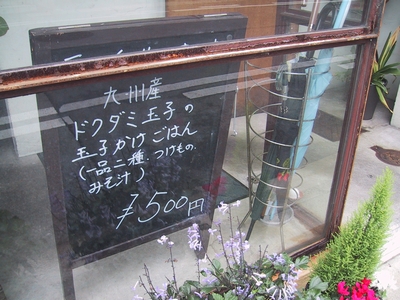 九州産
ドクダミ玉子の
玉子かけごはん
(一品二種、つけもの、
みそ汁)
¥500円